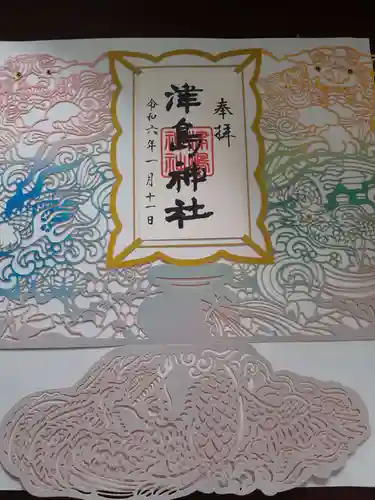 奉拝
津島神社
令和六年一月十一日